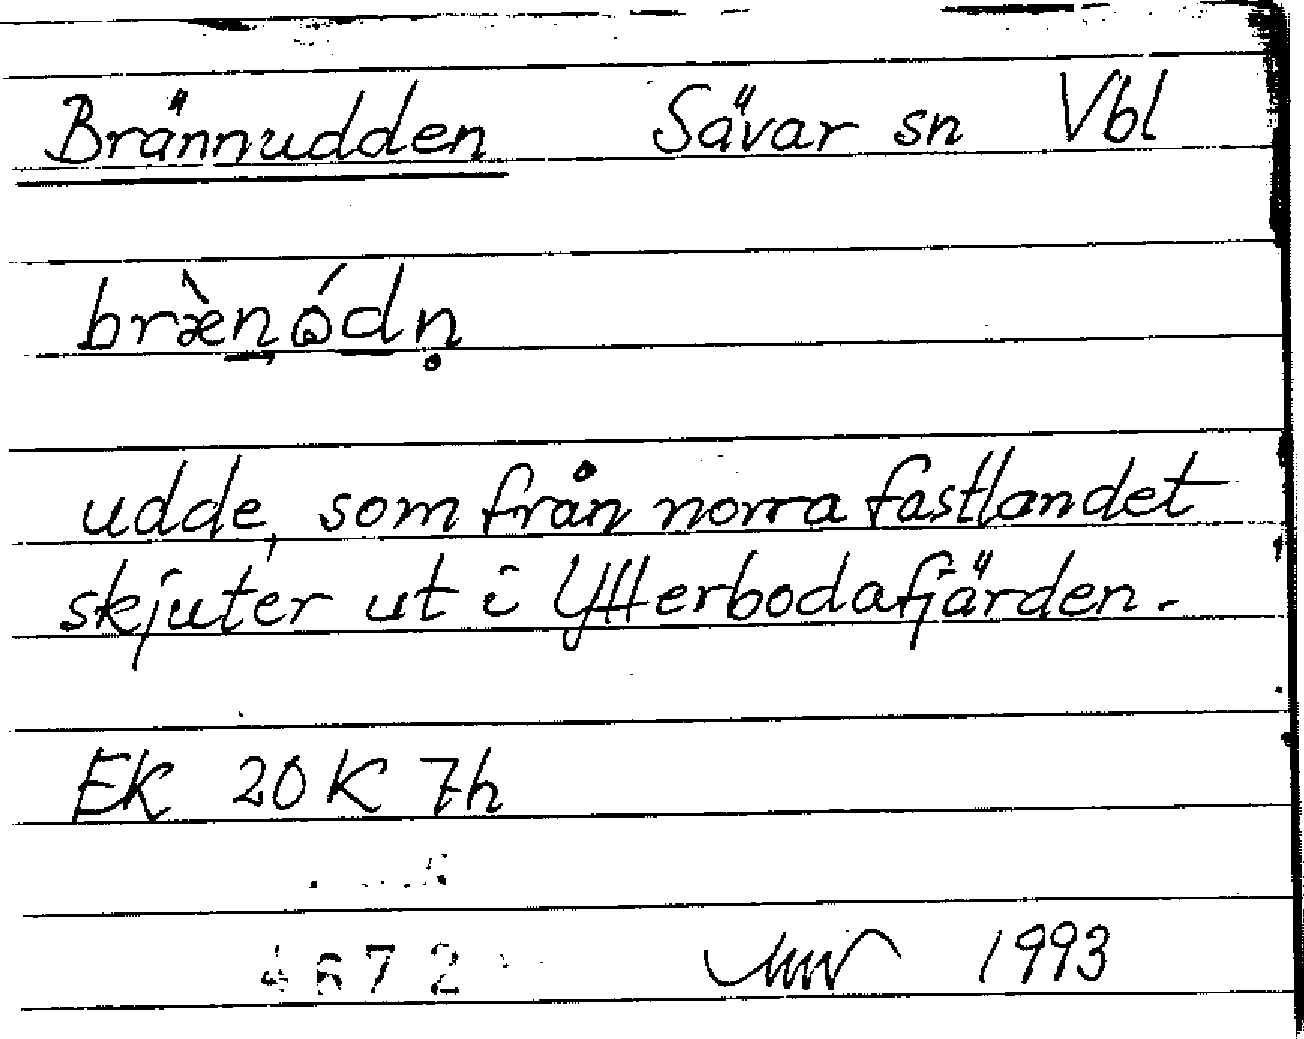 Brännudden Sävar sn Vbl
bræ̀nọ́dṇ
udde, som från norra fastlandet
skjuter ut i Ytterbodafjärden.
EK 20K 7h
4672 1993